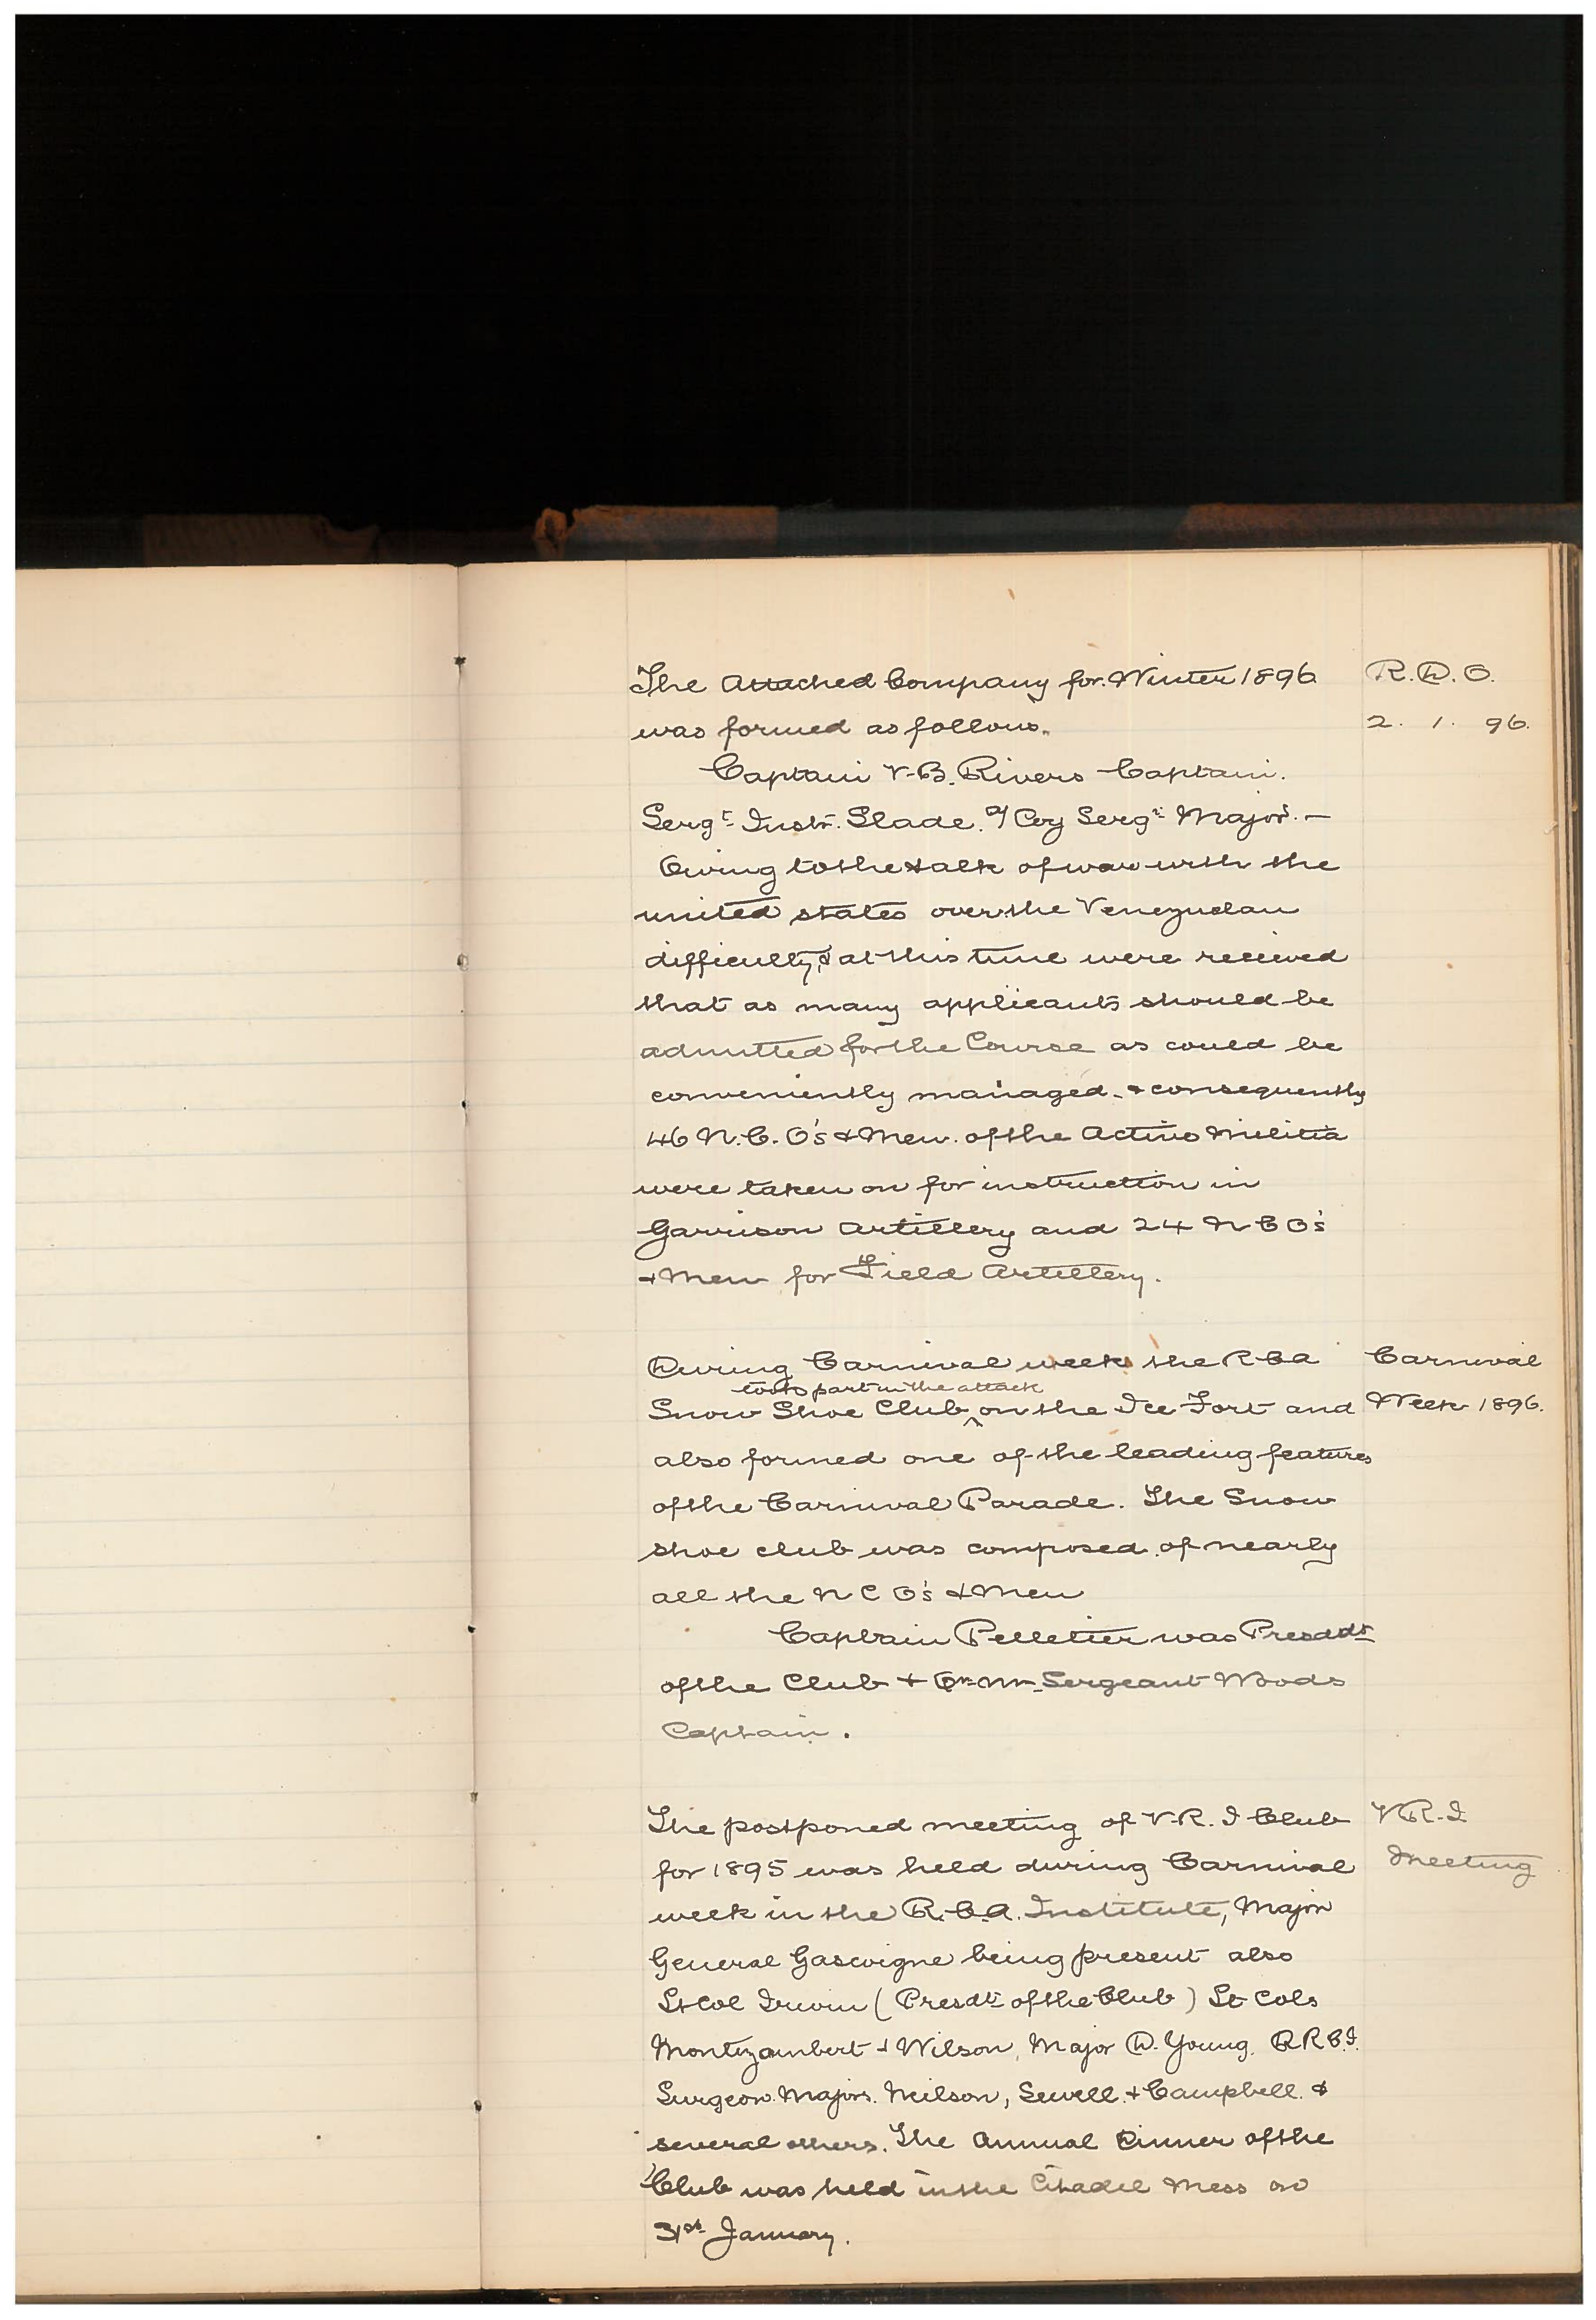 The Attached Company for Winter 1896 R.D.O.
was formed as follows. 2. 1. 96.
Captain V.B. Rivers Captain.
Sergt Instr. Slade. a/ Coy Sergt Major. —
Owing to the talk of war with the
united states over the Venezuelan
difficulty, & at this time were recieved
that as many applicants should be
admitted for the Course as could be
conveniently managed. & consequently
46 N.C.O's & Men. of the Active Militia
were taken on for instruction in
Garrison Artillery and 24 N C O's
& Men for Field Artillery.
During Carnival week the R C A Carnival
took part in the attack
Snow Shoe Club ^ on the Ice Fort and Week 1896.
also formed one of the leading features
of the Carnival Parade. The Snow
shoe club was composed of nearly
all the N C O's & Men
Captain Pelletier was Presddt
of the Club & Qr. Mr. Sergeant Woods
Captain.
The postponed meeting of V.R.I Club V R.I
for 1895 was held during Carnival Meeting
week in the R.C.A. Institute, Major
General Gascoigne being present also
Lt Col Irwin (Presdt of the Club) Lt Cols
Montizambert & Wilson, Major D. Young. R R C.I.
Surgeon. Majors. Neilson, Sewell. & Campbell. &
several others. The Annual Dinner of the
Club was held in the Citadel Mess on
31st January.